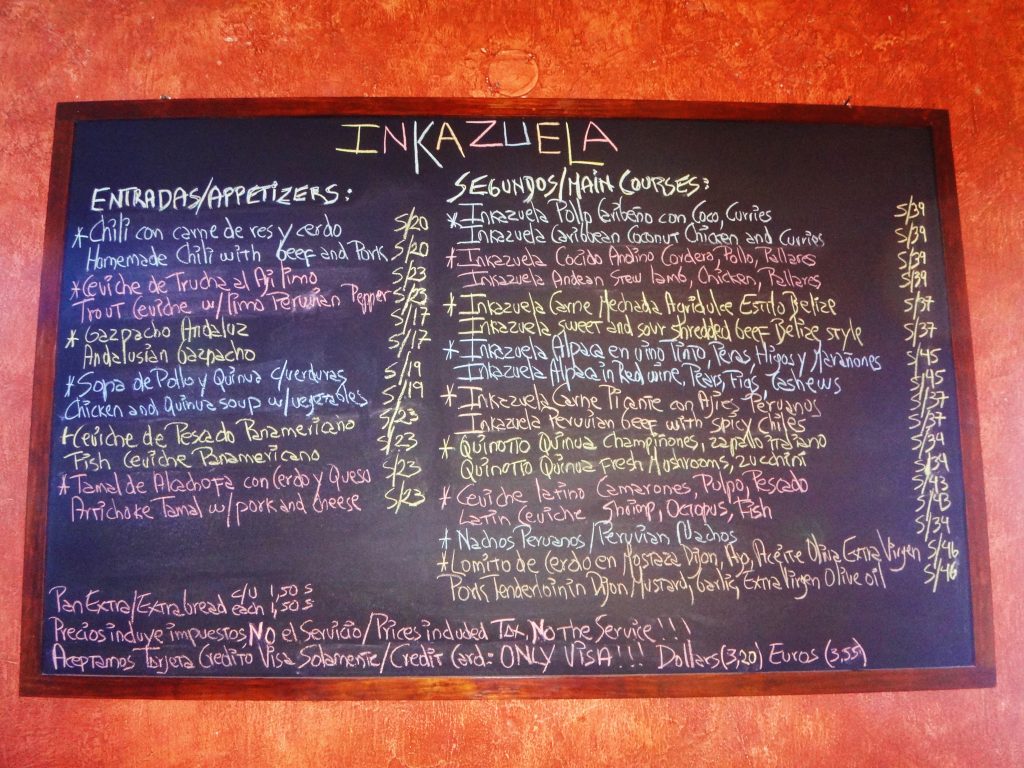 INKAZUELA
ENTRADAS/APPETIZERS:
* Chili con carne de res y cerdo S/20
Homemade Chili with beef and Pork S/20
* Ceviche de Trucha al Aji limo S/23
Trout Ceviche w/limo Peruvian Pepper S/23
* Gazpacho Andaluz S/17
Andalusian Gazpacho S/17
* Sopa de Pollo y Quinua c/verduras S/19
Chicken and Quinua soup w/vegetables S/19
* Ceviche de Pescado Panamericano S/23
Fish Ceviche Panamericano S/23
* Tamal de Alcachofa con Cerdo y Queso S/23
Artichoke Tamal w/pork and cheese S/23
SEGUNDOS/MAIN COURSES:
* Inkazuela Pollo Caribeño con Coco, Curries S/39
Inkazuela Caribbean Coconut Chicken and Curries S/39
* Inkazuela Cocido Andino Cordero, Pollo, Pallares S/39
Inkazuela Andean Stew lamb, Chicken, Pallares S/39
* Inkazuela Carne Mechada Agridulce Estilo Belize S/37
Inkazuela Sweet and sour shredded beef Belize style S/37
* Inkazuela Alpaca en vino Tinto, Peras, Higos y Marañones S/45
Inkazuela Alpaca in Red wine, Pears, Figs, Cashews S/45
* Inkazuela Carne Picante con Ajies Peruanos S/37
Inkazuela Peruvian beef with Spicy Chiles S/37
* Quinotto Quinua Champiñones, zapallo italiano S/34
Quinotto Quinua Fresh Mushrooms, zucchini S/34
* Ceviche latino Camarones, Pulpo, Pescado S/43
Latin Ceviche Shrimp, Octopus, Fish S/43
* Nachos Peruanos/Peruvian Nachos S/34
* Lomito de Cerdo en Mostaza Dijon, Ajo, Aceite Oliva Extra Virgen S/46
Pork Tenderloin in Dijon Mustard, garlic, Extra Virgen Olive oil S/46
Pan Extra/Extra bread c/u 1,50 s
each 1,50 s
Precios incluye impuestos, NO el Servicio/Prices included Tax, No the Service!!!
Aceptamos Tarjeta Credito Visa Solamente/Credit Card: ONLY VISA!!! Dollars(3,20) Euros (3,55)